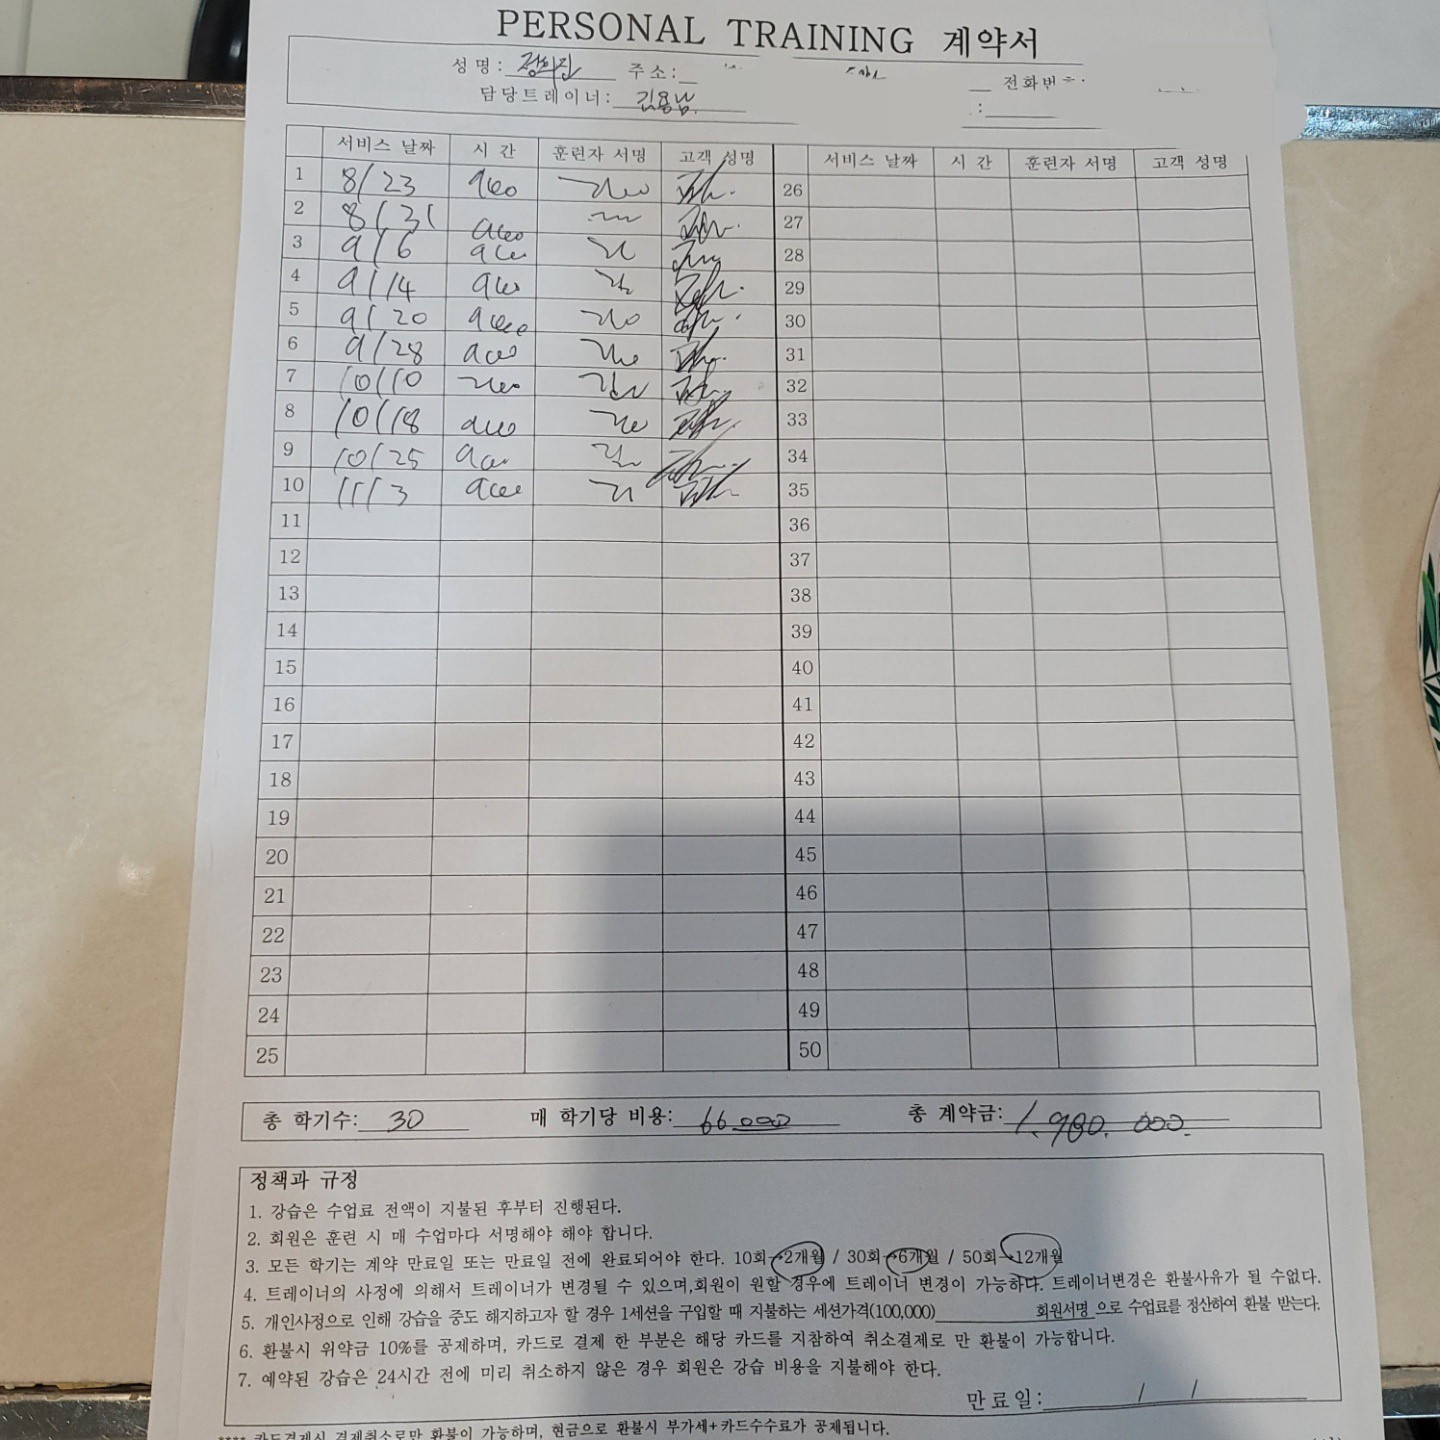 PERSONAL TRAINING 계약서
성 명: 정의진 주소: 전화번호:
담당트레이너: 김용남
서비스 날짜 시 간 훈련자 서명 고객 성명 서비스 날짜 시 간 훈련자 서명 고객 성명
1 8/23 26
2 8/31 27
3 9/6 28
4 9/14 29
5 9/20 30
6 9/28 31
7 10/10 32
8 10/18 33
9 10/25 34
10 11/3 35
11 36
12 37
13 38
14 39
15 40
16 41
17 42
18 43
19 44
20 45
21 46
22 47
23 48
24 49
25 50
총 학기수: 30 매 학기당 비용: 66000 총 계약금: 1,980,000
정책과 규정
1. 강습은 수업료 전액이 지불된 후부터 진행된다.
2. 회원은 훈련 시 매 수업마다 서명해야 해야 합니다.
3. 모든 학기는 계약 만료일 또는 만료일 전에 완료되어야 한다. 10회→2개월 / 30회→6개월 / 50회→12개월
4. 트레이너의 사정에 의해서 트레이너가 변경될 수 있으며,회원이 원할 경우에 트레이너 변경이 가능하다. 트레이너변경은 환불사유가 될 수없다.
5. 개인사정으로 인해 강습을 중도 해지하고자 할 경우 1세션을 구입할 때 지불하는 세션가격(100,000) 회원서명 으로 수업료를 정산하여 환불 받는다.
6. 환불시 위약금 10%를 공제하며, 카드로 결제 한 부분은 해당 카드를 지참하여 취소결제로 만 환불이 가능합니다.
7. 예약된 강습은 24시간 전에 미리 취소하지 않은 경우 회원은 강습 비용을 지불해야 한다.
만료일: / /
**** 카드결제시 결제취소로만 환불이 가능하며, 현금으로 환불시 부가세+카드수수료가 공제됩니다.